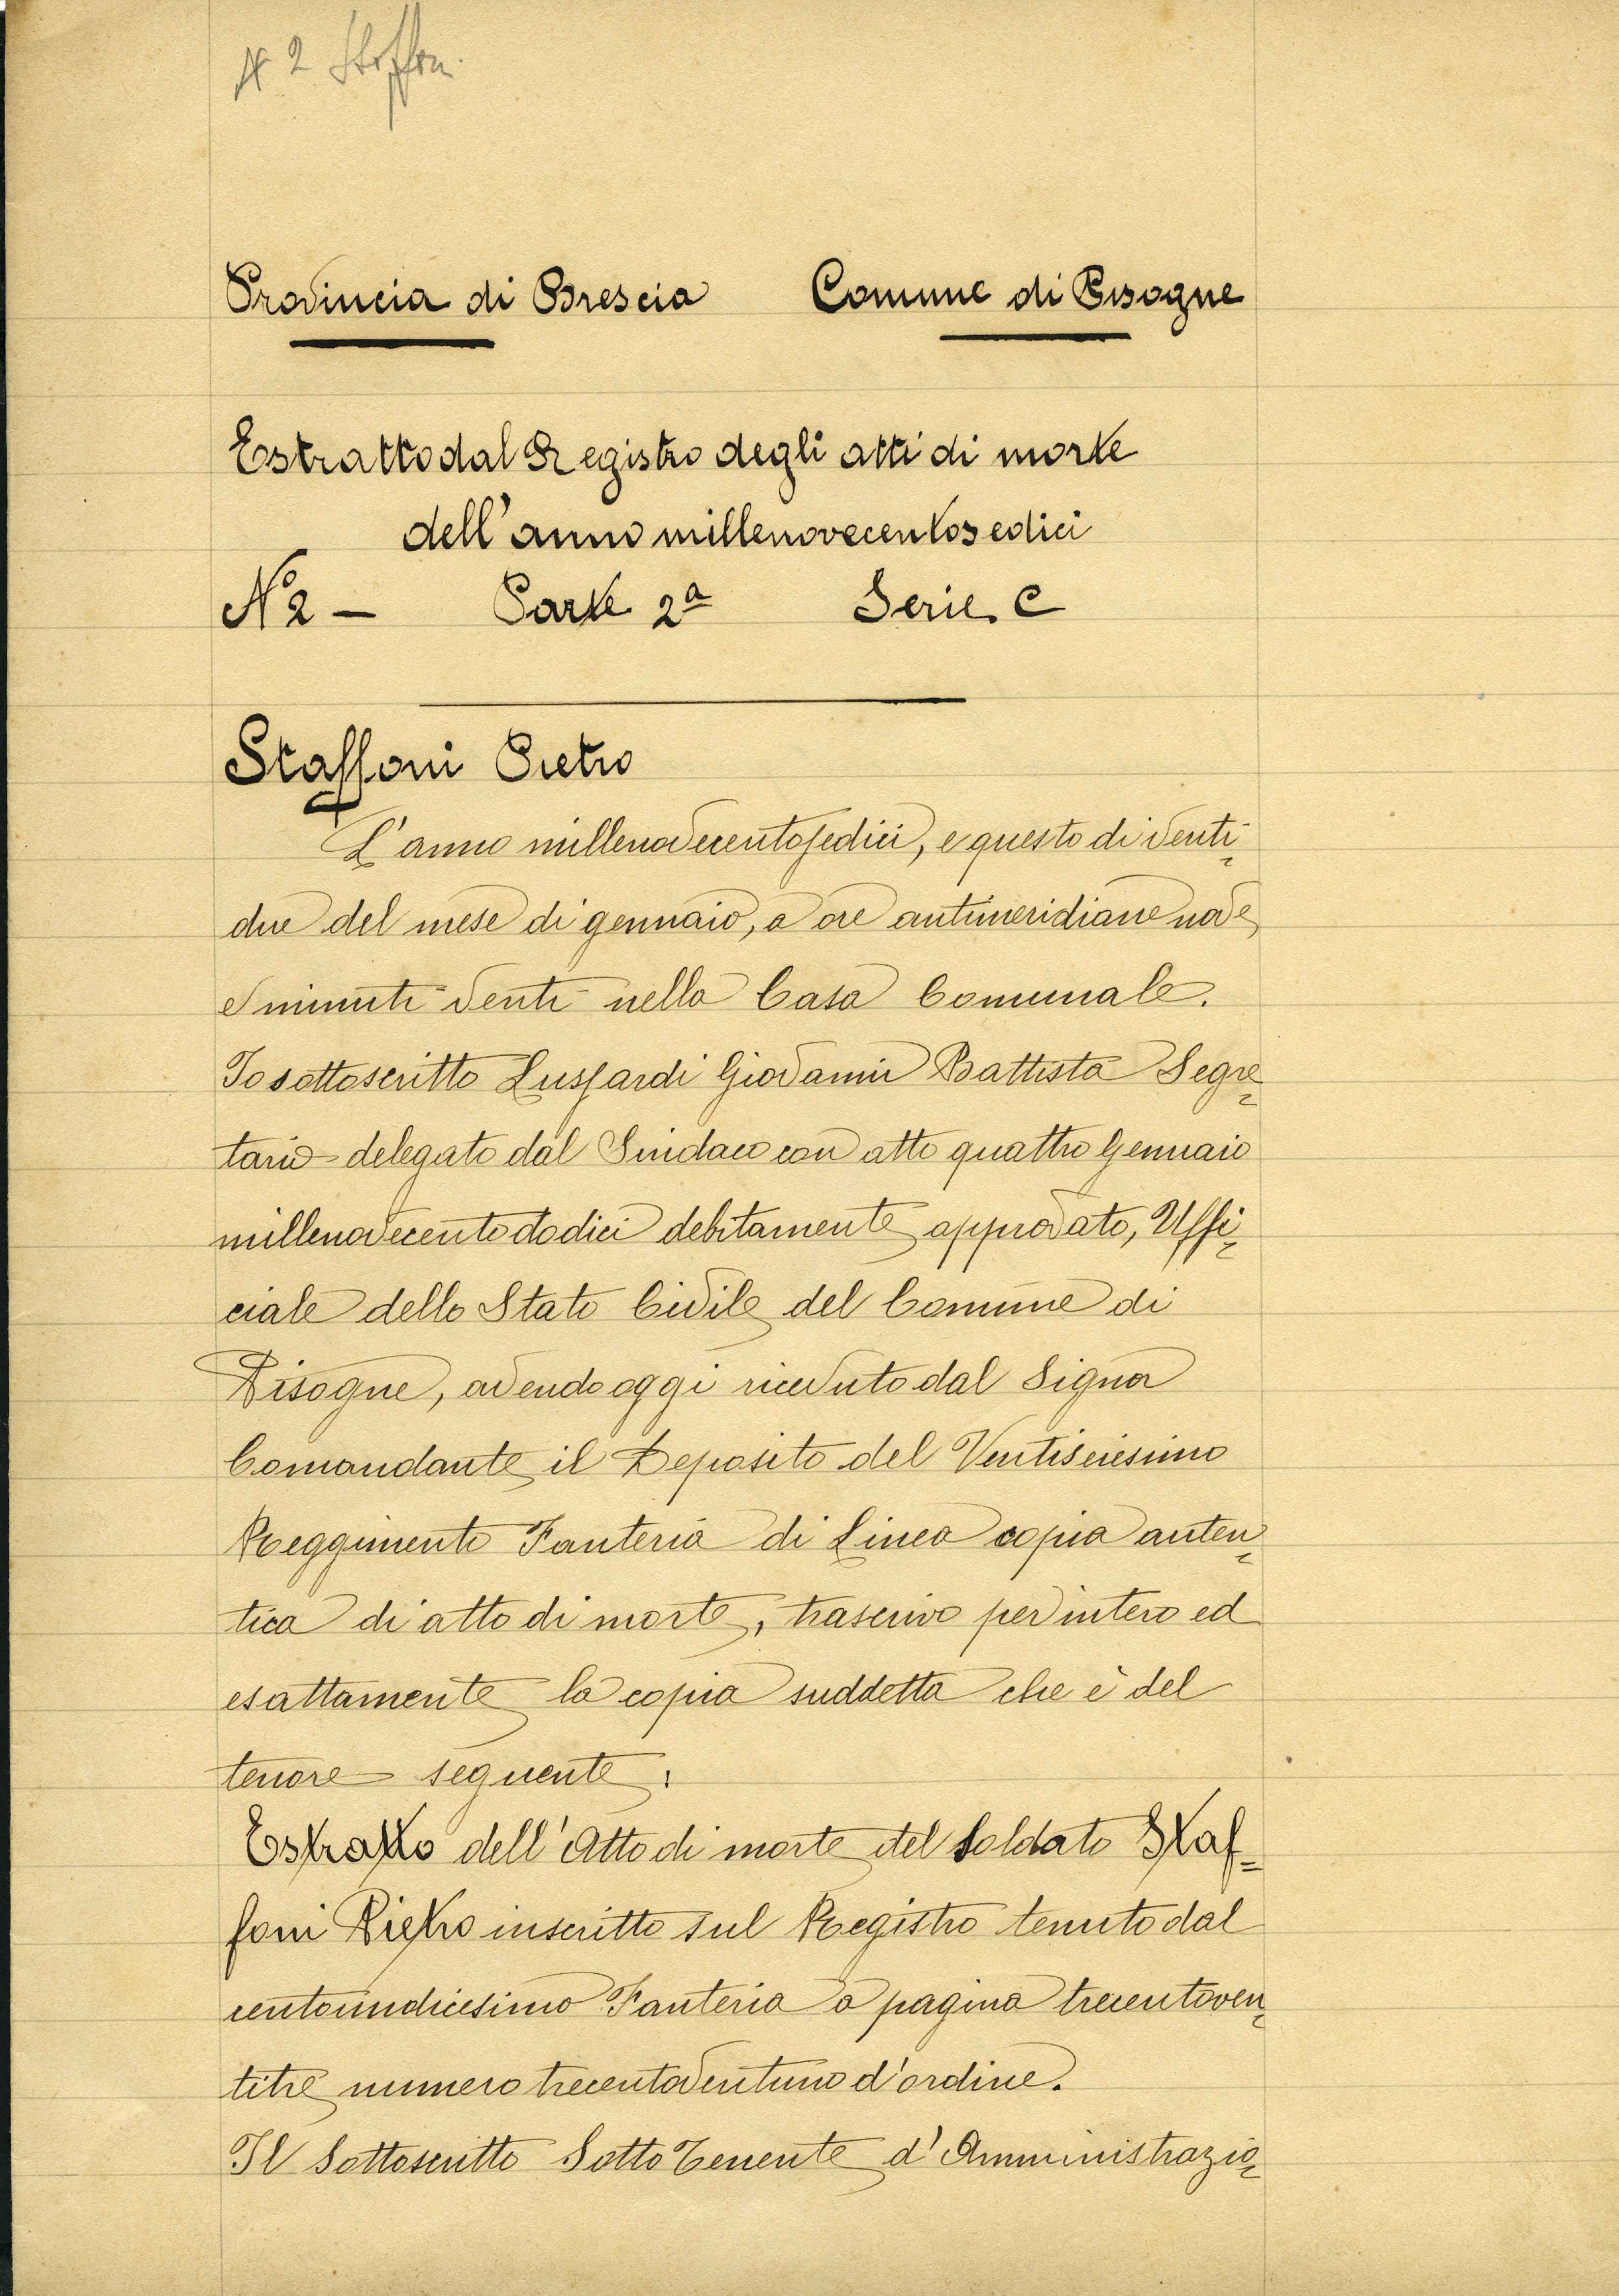 N 2 Staffoni
Provincia di Brescia Comune di Pisogne
Estratto dal Registro degli atti di morte
dell'anno millenovecentosedici
N° 2 – Parte 2ª Serie C
Staffoni Pietro
L'anno millenovecentosedici, e questo dì venti-
due del mese di gennaio, a ore antimeridiane nove
e minuti venti nella Casa Comunale.
Io sottoscritto Lussardi Giovanni Battista Segre-
tario delegato dal Sindaco con atto quattro Gennaio
millenovecentododici debitamente approvato, Uffi-
ciale dello Stato Civile del Comune di
Pisogne, avendo oggi ricevuto dal Signor
Comandante il Deposito del Ventiseiesimo
Reggimento Fanteria di Linea copia auten-
tica di atto di morte, trascrivo per intero ed
esattamente la copia suddetta che è del
tenore seguente:
Estratto dell'Atto di morte del Soldato Staf-
foni Pietro inscritto sul Registro tenuto dal
centoundicesimo Fanteria a pagina trecentoven-
titre numero trecentoventuno d'ordine.
Il Sottoscritto Sotto Tenente d'Amministrazio-